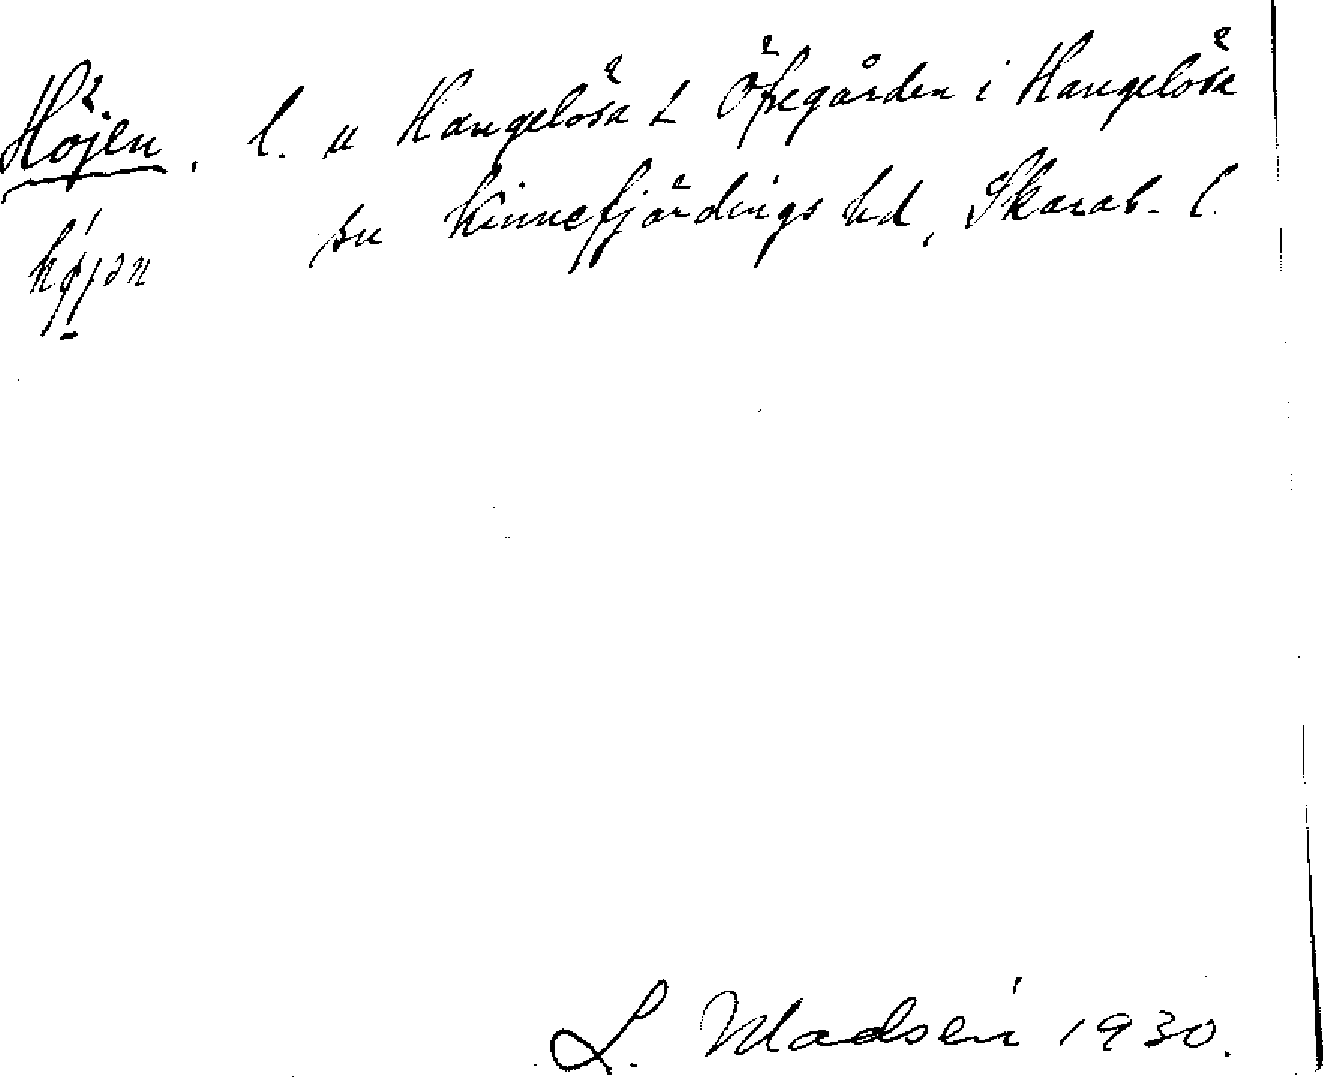 Höjen. l. u Hangelösa L Öfregården i Hangelösa
hǿjən sn Kinnefjärdings hd, Skarab. l.
L. Madsén 1930.